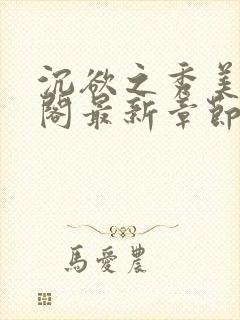 沉欲之秀美
閣最新章節
馬愛農